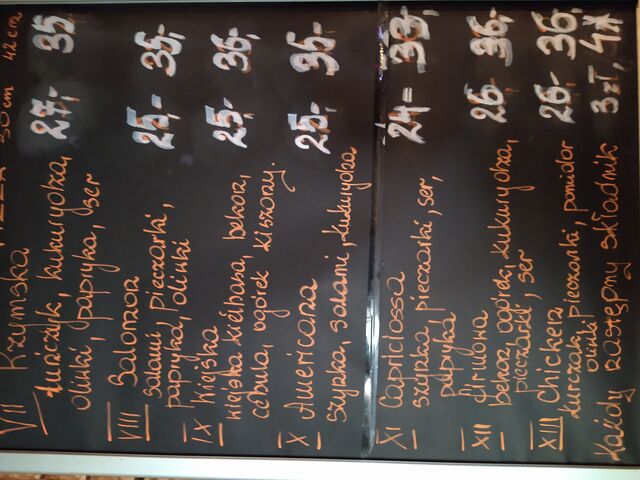 30 cm 42 cm
VII Rzymska 27,- 35
tuńczyk, kukurydza,
oliwki, papryka, ser
VIII 25,- 35,-
salami, pieczarki,
papryka, oliwki
IX Wiejska 25,- 36,-
wiejska kiełbasa, bekon,
cebula, ogórek kiszony.
X Americana 25,- 35,-
Szynka, salami, kukurydza
XI Capriciossa 24= 33,-
szynka, pieczarki, ser,
papryka
XII Firmowa 26,- 36,-
bekon, ogórek, kukurydza,
pieczarki, ser
XIII Chicken 26,- 36,
kurczak, pieczarki, pomidor
oliwki
Każdy następny składnik 3 zł, 4*